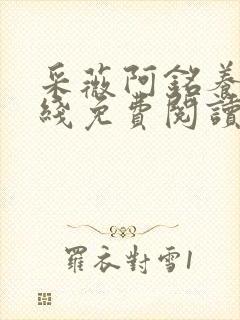 采薇阿銘養
綫免費閱讀
羅衣對雪1